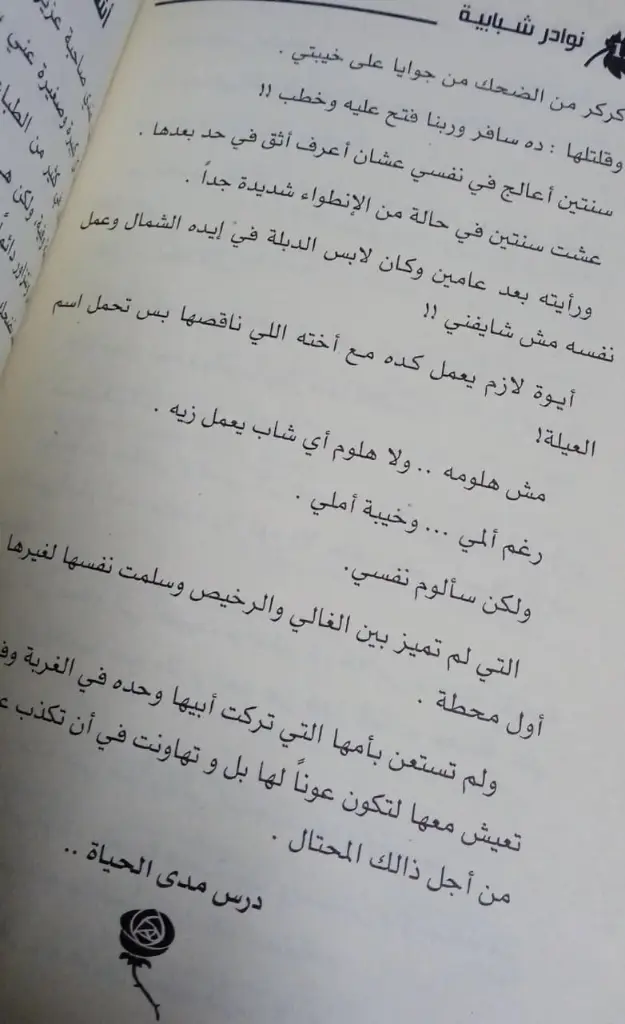 نوادر شبابية
كركر من الضحك من جوايا على خيبتي .
وقلتلها : ده سافر وربنا فتح عليه وخطب !!
سنتين أعالج في نفسي عشان أعرف أثق في حد بعدها .
عشت سنتين في حالة من الإنطواء شديدة جداً .
ورأيته بعد عامين وكان لابس الدبلة في إيده الشمال وعمل
نفسه مش شايفني !!
أيوة لازم يعمل كده مع أخته اللي ناقصها بس تحمل اسم
العيلة!
مش هلومه .. ولا هلوم أي شاب يعمل زيه .
رغم ألمي ... وخيبة أملي .
ولكن سألوم نفسي.
التي لم تميز بين الغالي والرخيص وسلمت نفسها لغيرها
أول محطة .
ولم تستعن بأمها التي تركت أبيها وحده في الغربة
تعيش معها لتكون عوناً لها بل و تهاونت في أن تكذب
من أجل ذالك المحتال .
درس مدى الحياة ..